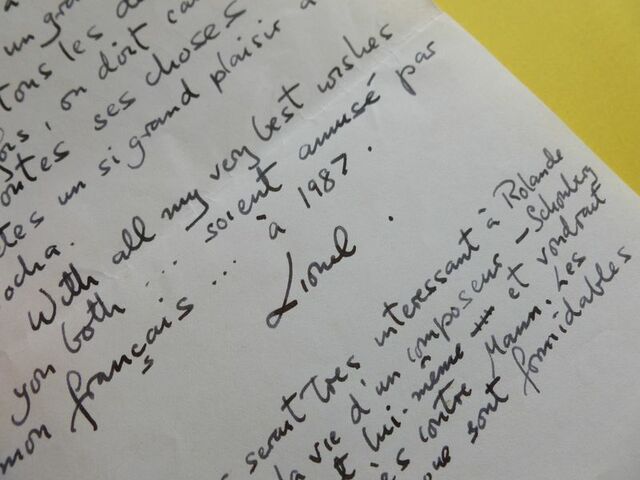 un gra
Tous les de
, on doit
toutes ses choses
tes un si grand plaisir à
ocha.
With all my very best wishes
you both ... soient amusé par
mon français ... à 1987.
Lionel.
serait très interessant à Rolande
la vie d'un composeur - Schönberg
t lui-même et voudrait
es contre Mann. Les
que sont formidables